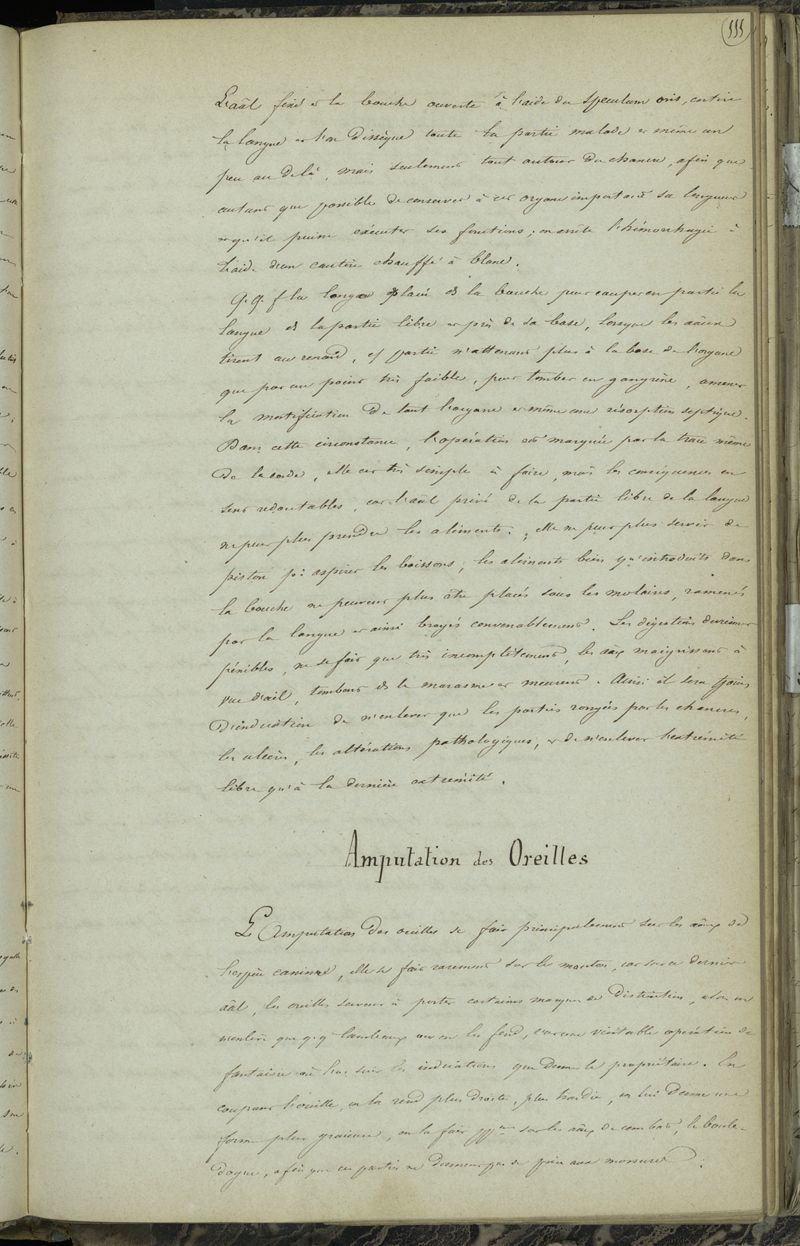 555
L'aāl fixé et la bouche ouverte à l'aide du speculum oris, on tire
la langue et l'on dissèque toute la partie malade et même un
peu au delà, mais seulement tout autour du chancre, afin que
autant que possible de conserver à cet organe important sa longueur
et qu'il puisse exécuter ses fonctions; on arrête l'hémorrhagie à
l'aide d'un cautère chauffé à blanc.
Q. q. f la longe placée ds la bouche peut couper en partie la
langue ds la partie libre et près de sa base, lorsque les aāux
tirent au renard, cette partie n'attenant plus à la base de l'organe
que par un point très faible, peut tomber en gangrène, amener
la mortification de tout l'organe et même une résorption septique.
Dans cette circonstance, l'opération est marquée par la trace même
de la corde, elle est très simple à faire, mais les conséquences en
sont redoutables, car l'aāl privé de la partie libre de la langue
ne peut plus prendre les aliments; elle ne peut plus servir de
piston pr aspirer les boissons; les aliments bien qu'introduits dans
la bouche ne peuvent plus être placés sous les molaires, ramenés
par la langue et ainsi broyés convenablement. Les digestions deviennent
pénibles, ne se font que très incomplètement, les aāux maigrissent à
vue d'œil, tombent ds le marasme et meurent. Ainsi il sera
d'indication de n'enlever que les parties rongées par les chancres,
les ulcères, les altérations pathologiques, et de n'enlever l'extrémité
libre qu'à la dernière extrémité.
Amputation des Oreilles
L'Amputation des oreilles se fait principalement sur les aāux de
l'espèce canine, elle se fait rarement sur le mouton, car sur ce dernier
aāl, les oreilles servent à porter certaines marques de distinction, alors on
n'enlève que q. q. lambeaux ou on les fend, c'est une véritable opération de
fantaisie sur les indications que donne le propriétaire. En
coupant l'oreille, on la rend plus droite, plus hardie, on lui donne une
forme plus gracieuse, on la fait sur les aāux de combat, le boule-
dogue, afin que ces parties ne donnent pas de prise aux morsures.